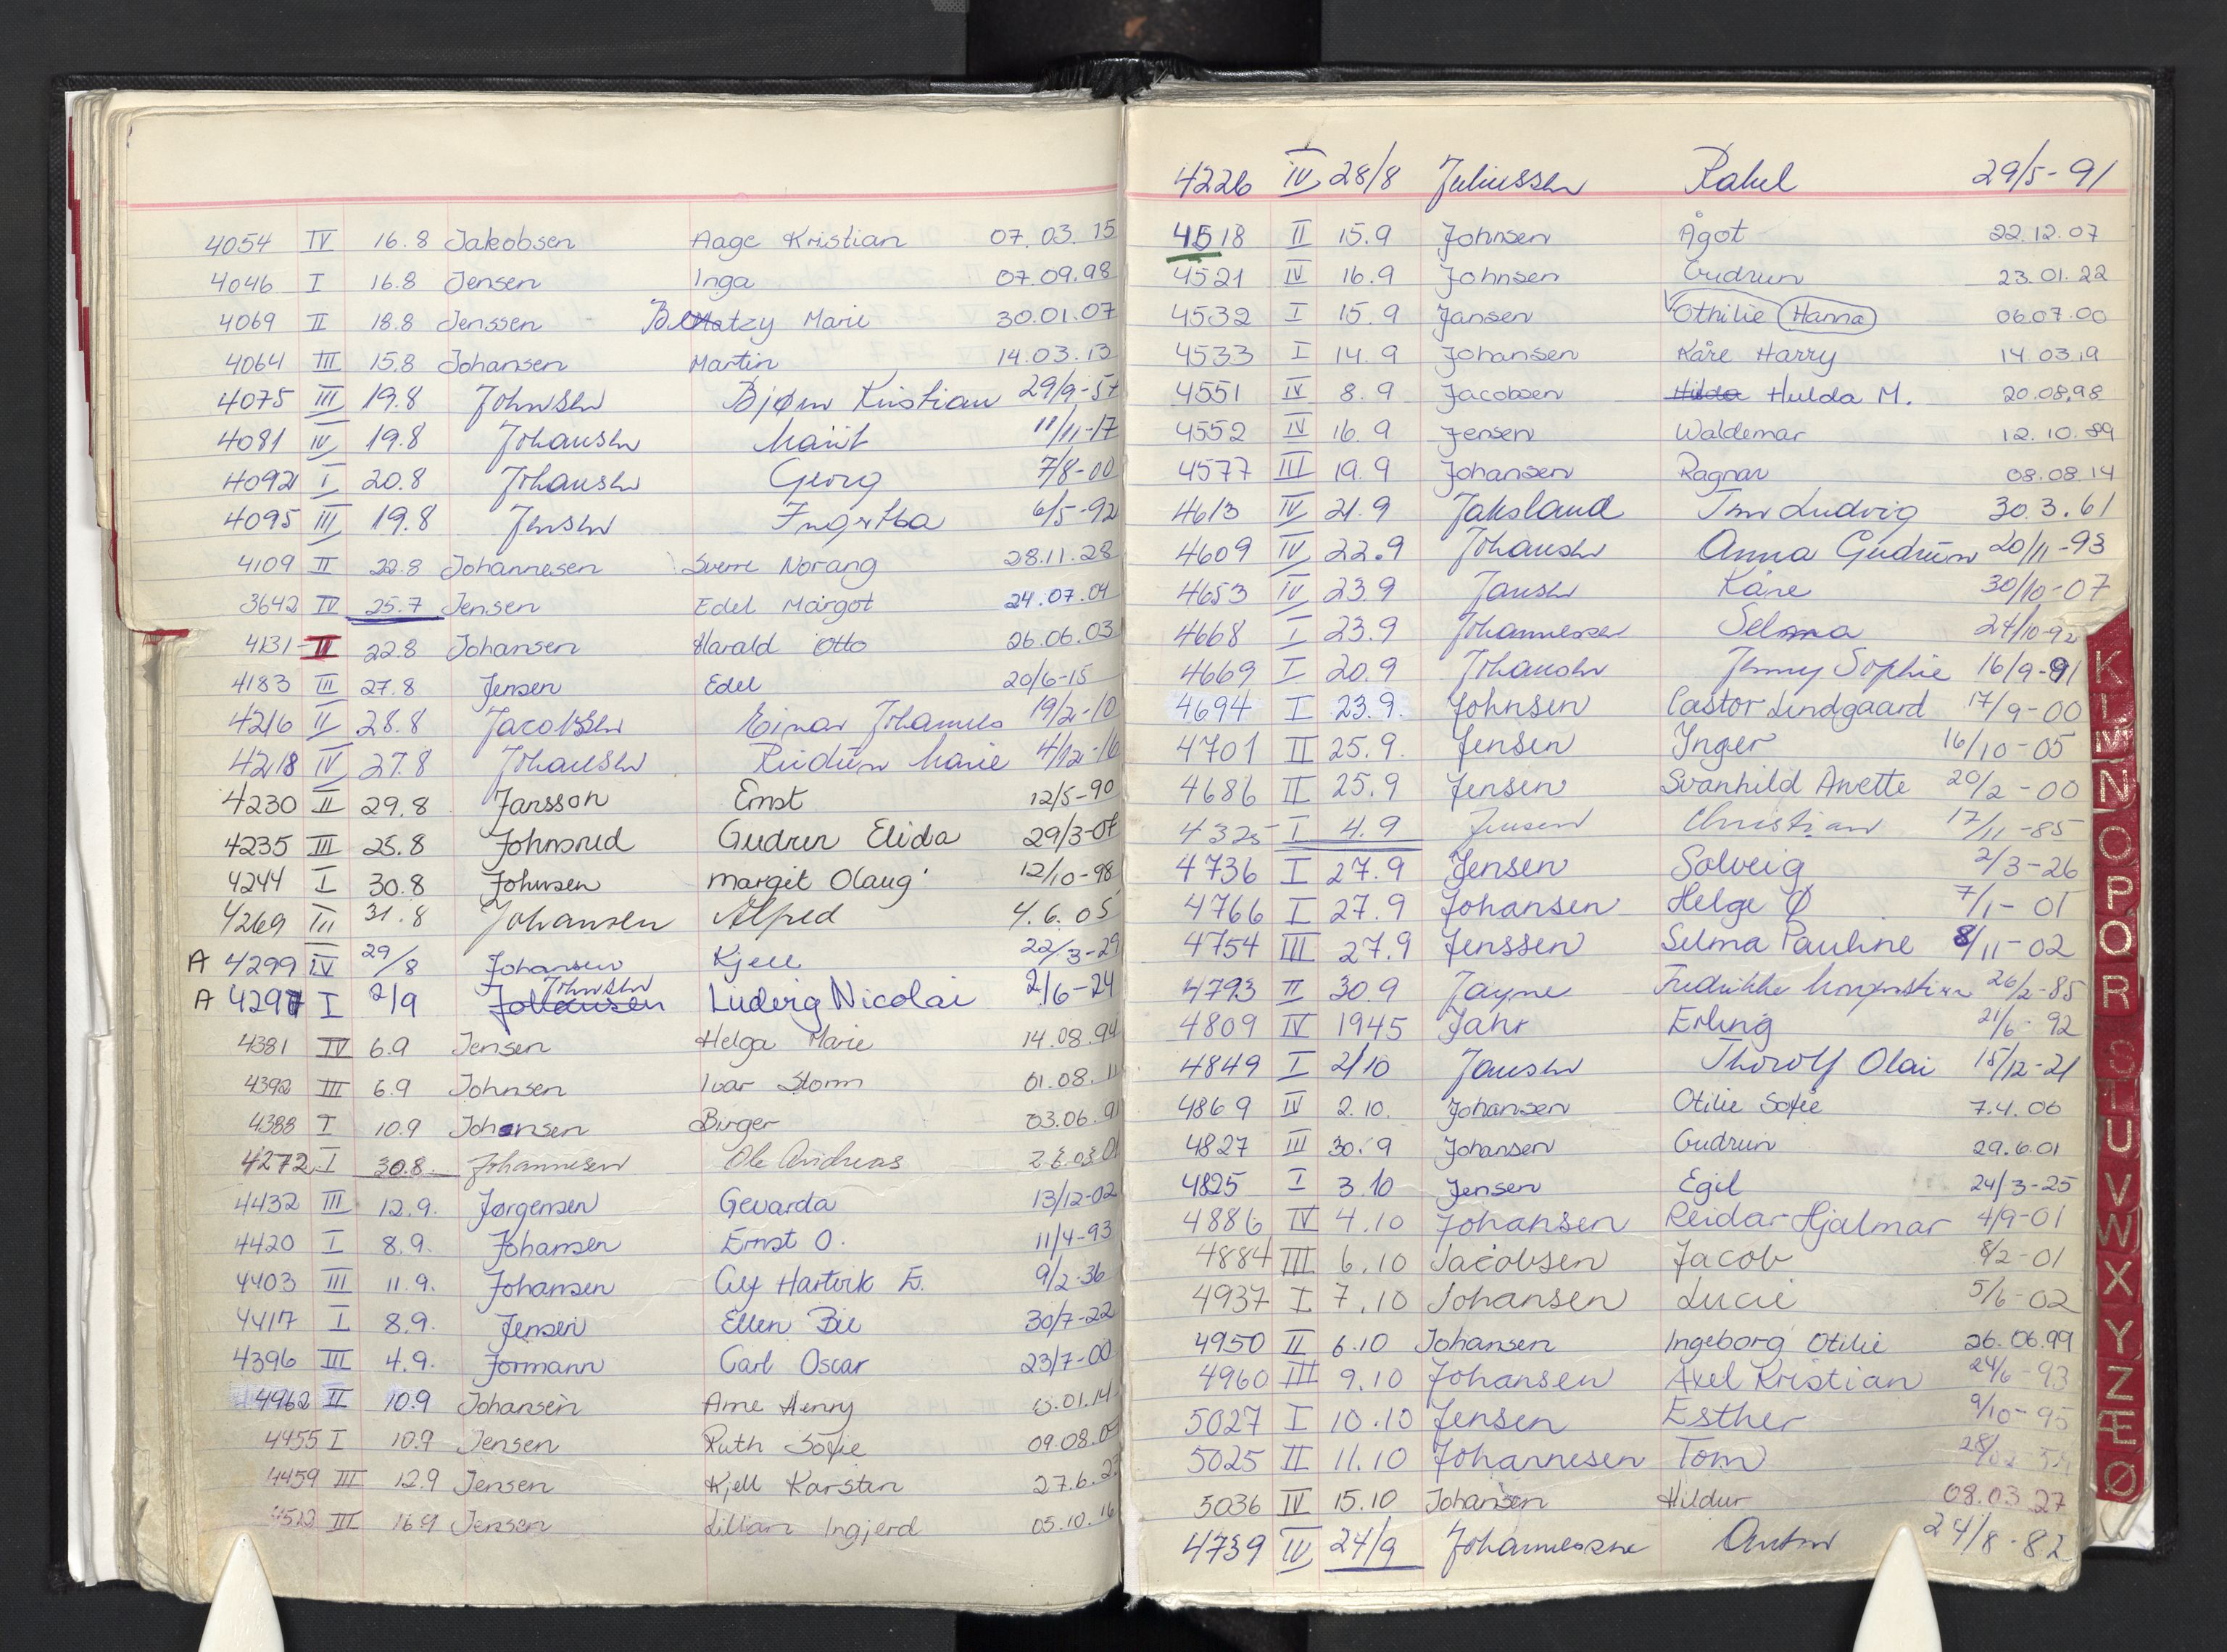 4054 IV 16.8 Jakobsen Aage Kristian 07.03.15
4046 I 16.8 Jensen Inga 07.09.98
4069 II 18.8 Jenssen - Marie 30.01.07
4064 III 15.8 Johansen Martin 14.03.13
4075 III 19.8 Johnsen Bjørn Kristian 29/9-57
4081 IV 19.8 Johansen Marit 11/11-17
4092 I 20.8 Johansen Georg 7/8-00
4095 III 19.8 Jensen 6/5-92
4109 II 22.8 Johannesen Sverre Norang 28.11.28
3642 IV 25.7 Jensen Edel Margot 24.07.04
4131 II 22.8 Johansen Harald Otto 26.06.03
4183 III 27.8 Jensen Edel 20/6-15
4216 II 28.8 Jacobsen Einar Johannes 19/2-10
4218 IV 27.8 Johansen Marie 4/12-16
4230 II 29.8 Jansson Ernst 12/5-90
4235 III 25.8 Johnsrud Gudrun Elida 29/3-07
4244 I 30.8 Johnsen Margit Olaug 12/10-98
4269 III 31.8 Johansen Alfred 4.6.05
A 4299 IV 29/8 Johansen Kjell 22/3-29
A 4297 I 2/9 Johansen Johnsen Ludvig Nicolai 2/6-24
4381 IV 6.9 Jensen Helga Marie 14.08.94
4392 III 6.9 Johnsen Ivar Storm 01.08.11
4388 I 10.9 Johansen Birger 03.06.91
4272 I 30.8 Johannesen Ole Andreas
4432 III 12.9. Jørgensen Gevarda 13/12-02
4420 I 8.9. Johansen Ernst O. 11/4-93
4403 III 11.9. Johansen Hartvik E. 9/2-36
4417 I 8.9. Jensen Ellen Bie 30/7-22
4396 III 4.9. Jormann Carl Oscar 23/7-00
4962 II 10.9 Johansen Arne Henry
4455 I 10.9 Jensen Ruth Sofie
4459 III 12.9 Jensen Kjell Karsten
4512 III 16.9 Jensen Lillian Ingjerd 05.10.16
4226 IV 28/8 Juliussen Rakel 29/5-91
4518 II 15.9 Johnsen Ågot 22.12.07
4521 IV 16.9 Johnsen Gudrun 23.01.22
4532 I 15.9 Jansen Othilie Hanna 06.07.00
4533 I 14.9 Johansen Kåre Harry 14.03.19
4551 IV 8.9 Jacobsen Hilda Hulda M. 20.08.98
4552 IV 16.9 Jensen Waldemar 12.10.89
4577 III 19.9 Johansen Ragnar 08.08.14
4613 IV 21.9 Jaksland Ludvig 30.3.61
4609 IV 22.9 Johansen Anna Gudrun 20/11-93
4653 IV 23.9 Jansen Kåre 30/10-07
4668 I 23.9 Johannessen Selma 24/10-92
4669 I 20.9 Johansen Jenny Sophie 16/9-91
4694 I 23.9. Johnsen Castor Lindgaard 17/9-00
4701 II 25.9. Jensen Inger 16/10-05
4686 II 25.9 Jensen Svanhild Anette 20/2-00
4325 I 4.9 Jensen Christian 17/11-85
4736 I 27.9 Jensen Solveig 2/3-26
4766 I 27.9 Johansen Helge Ø 7/1-01
4754 III 27.9 Jenssen Selma Pauline 8/11-02
4793 II 30.9 Jayne Fredrikke 26/2-85
4809 IV 1945 Jahr Erling 21/6-92
4849 I 2/10 Jansen Thorolf Olai 15/12-21
4869 IV 2.10. Johansen Otilie Sofie 7.4.06
4827 III 30.9 Johansen Gudrun 29.6.01
4825 I 3.10 Jensen Egil 24/3-25
4886 IV 4.10 Johansen Reidar Hjalmar 4/9-01
4884 III 6.10 Jacobsen Jacob 8/2-01
4937 I 7.10 Johansen Lucie 5/6-02
4950 II 6.10 Johansen Ingeborg Otilie 26.06.99
4960 III 9.10 Johansen Axel Kristian 24/6-93
5027 I 10.10 Jensen Esther 9/10-95
5025 II 11.10 Johannesen Tom
5036 IV 15.10 Johansen Hildur 08.03.27
4739 IV 24/9 Johannessen Anton 24/8-82
K
L
M
N
O
P
Q
R
S
T
U
V
W
X
Y
Z
Æ
Ø